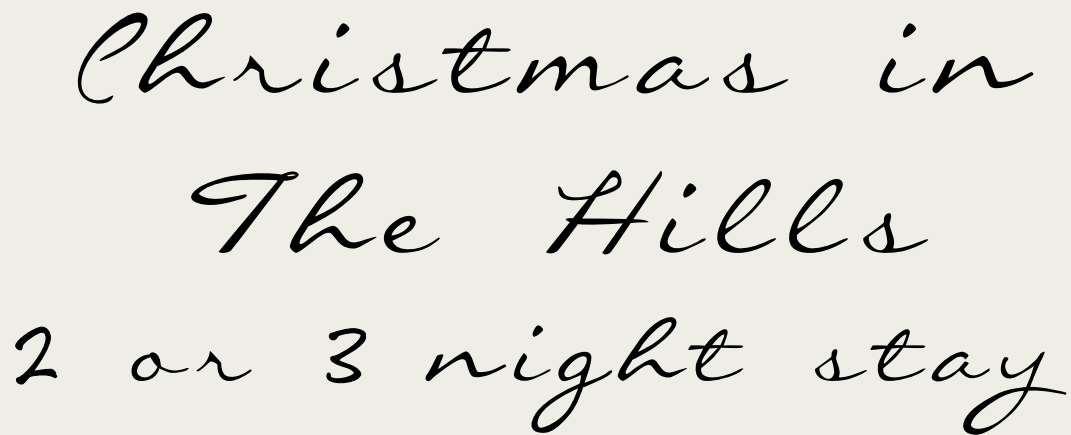 Christmas in
The Hills
2 or 3 night stay